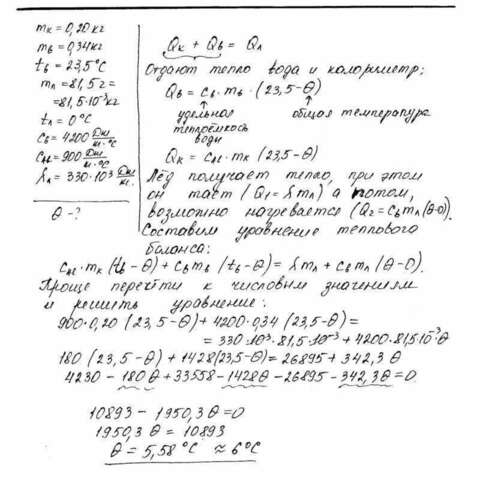 mк = 0,20 кг
mв = 0,34 кг
tв = 23,5°C
mл = 81,5 г =
= 81,5·10⁻³ кг
tл = 0°C
cв = 4200 Дж/кг·°C
cал = 900 Дж/кг·°C
λл = 330·10³ Дж/кг.
θ - ?
Qк + Qв = Qл
Отдают тепло вода и калориметр:
Qв = cв·mв·(23,5-θ)
удельная общая температура
теплоёмкость
воды
Qк = cал·mк (23,5-θ)
Лёд получает тепло, при этом
он тает (Q₁ = λmл) а потом,
возможно нагревается (Q₂ = cвmл(θ-0).
Составим уравнение теплового
баланса:
cал·mк (tв - θ) + cвmв (tв - θ) = λmл + cвmл (θ-0).
Проще перейти к числовым значениям
и решить уравнение:
900·0,20 (23,5-θ) + 4200·0,34 (23,5-θ) =
= 330·10³·81,5·10⁻³ + 4200·81,5·10⁻³θ
180 (23,5-θ) + 1428(23,5-θ) = 26895 + 342,3 θ
4230 - 180θ + 33558 - 1428θ - 26895 - 342,3θ = 0
10893 - 1950,3 θ = 0
1950,3 θ = 10893
θ = 5,58 °C ≈ 6°C